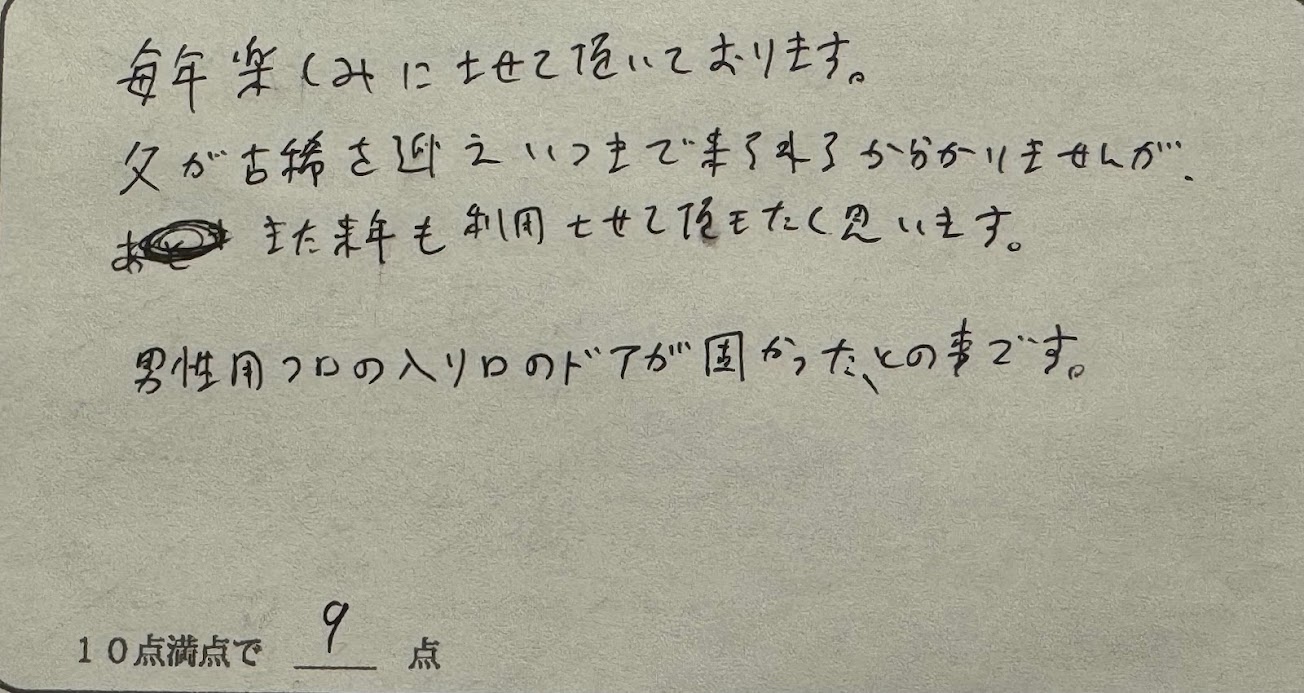 毎年楽しみにさせて頂いております。
父が古稀を迎えいつまで来られるか分かりませんが、
また来年も利用させて頂きたく思います。
男性用フロの入り口のドアが固かった、との事です。
10点満点で 9 点